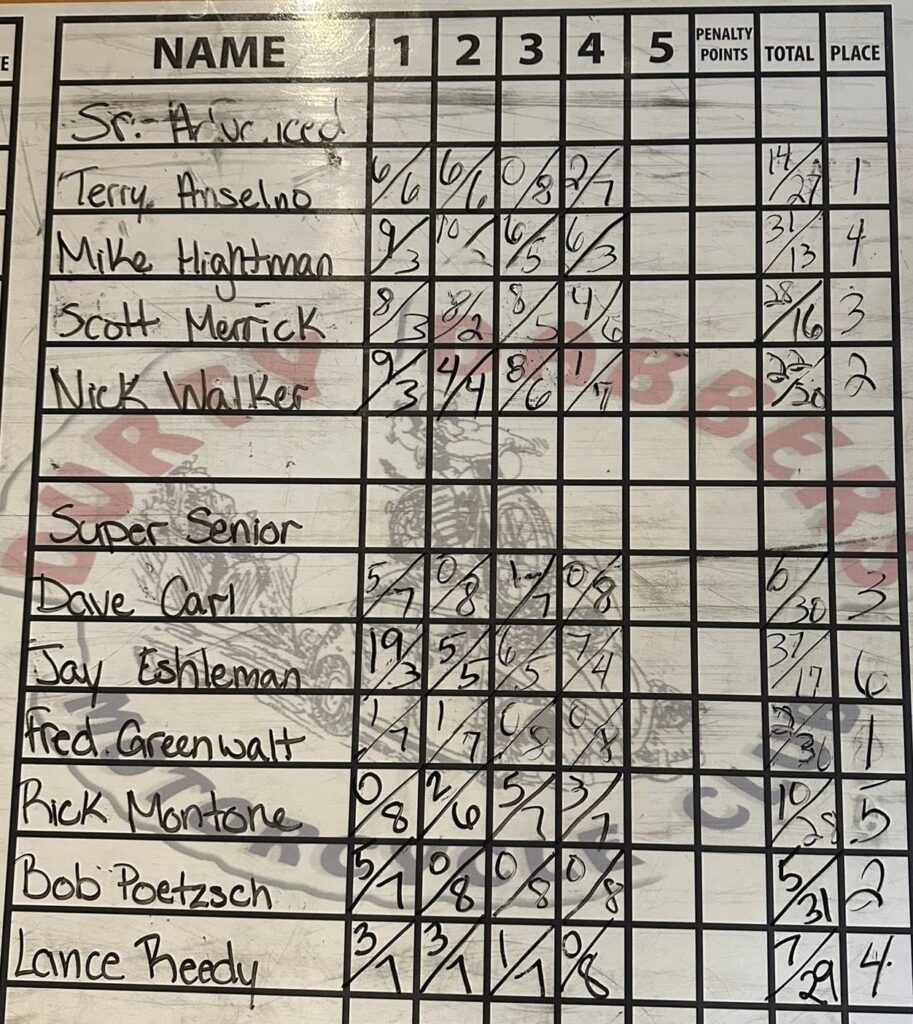 E
NAME 1 2 3 4 5 PENALTY POINTS TOTAL PLACE
Sr.
Terry Anselno 6/6 6/6 0/8 2/7 14/27 1
Mike Hightman 9/3 10/ 6/5 6/3 31/13 4
Scott Merrick 8/3 8/2 8/5 4/6 28/16 3
Nick Walker 9/3 4/4 8/6 1/7 22/20 2
Super Senior
Dave Carl 5/7 0/8 1/7 0/8 6/30 3
Jay Eshleman 19/3 5/5 6/5 7/4 37/17 6
Fred Greenwalt 1/7 1/7 0/8 0/8 1
Rick Montone 0/8 2/6 5/7 3/7 10/28 5
Bob Poetzsch 5/7 0/8 0/8 0/8 5/31 2
Lance Reedy 3/7 3/7 1/7 0/8 7/29 4
DURTY DABBERS
MOTORCYCLE CLUB